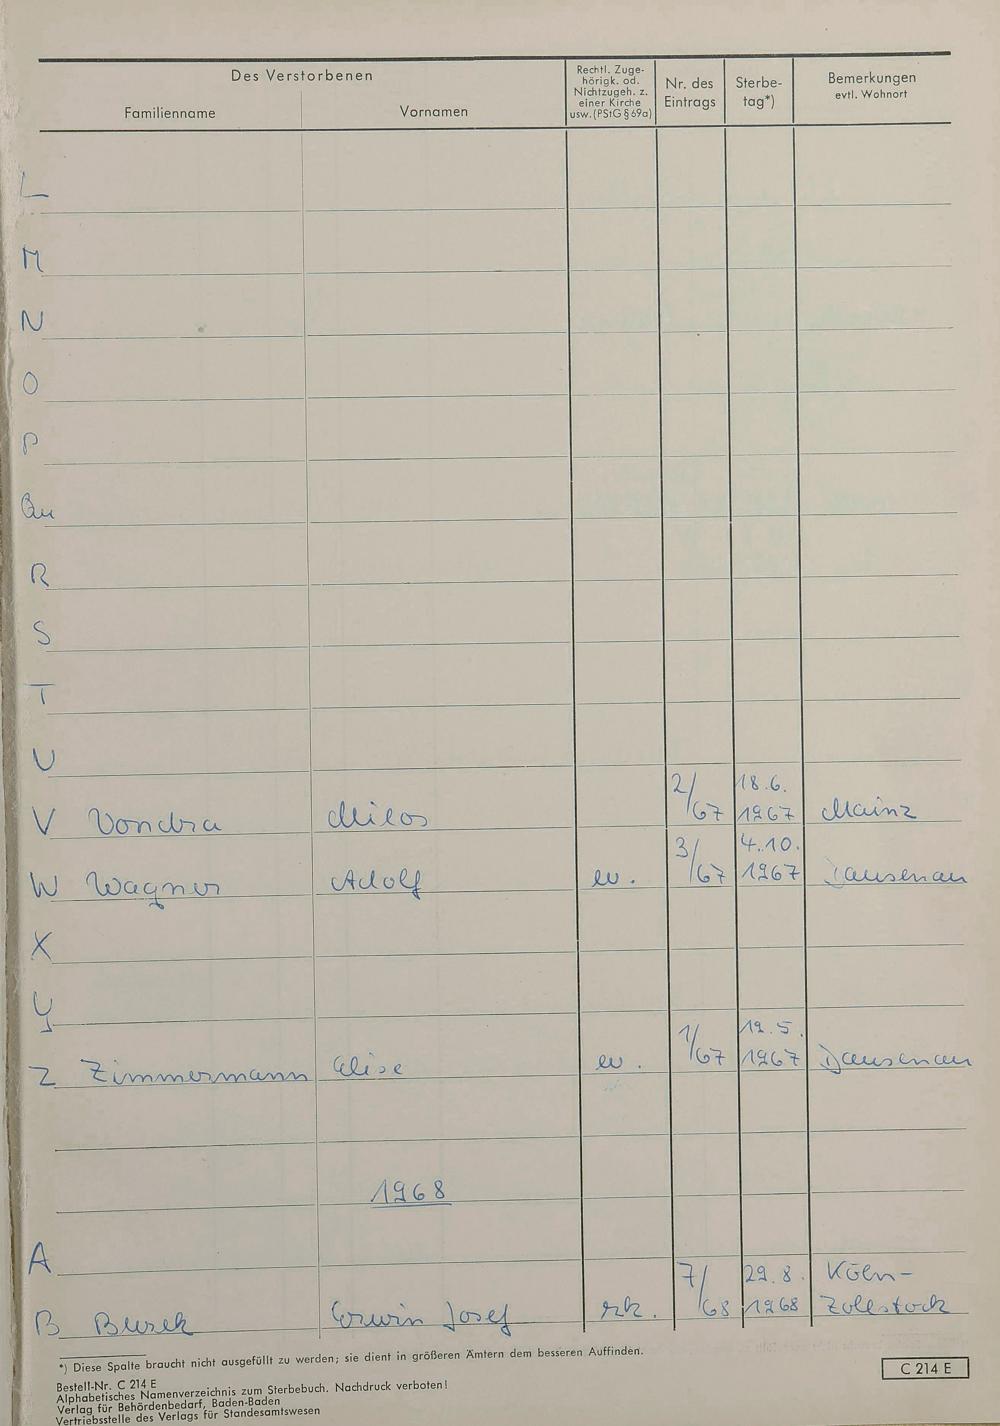 Des Verstorbenen
Familienname
Vornamen
Rechtl. Zuge-
hörigk. od.
Nichtzugeh. z.
einer Kirche
usw. (PStG § 69a)
Nr. des
Eintrags
Sterbe-
tag*)
Bemerkungen
evtl. Wohnort
L
M
N
O
P
Qu
R
S
T
U
V Vondra Milos 2/67 18.6.1967 Mainz
W Wagner Adolf ev. 3/67 4.10.1967 Dausenau
X
Y
Z Zimmermann Elise ev. 1/67 12.5.1967 Dausenau
1968
A
B Burek Erwin Josef rk. 7/68 29.8.1968 Köln-
Zollstock
*) Diese Spalte braucht nicht ausgefüllt zu werden; sie dient in größeren Ämtern dem besseren Auffinden.
Bestell-Nr. C 214 E
Alphabetisches Namenverzeichnis zum Sterbebuch. Nachdruck verboten!
Verlag für Behördenbedarf, Baden-Baden
Vertriebsstelle des Verlags für Standesamtswesen
C 214 E